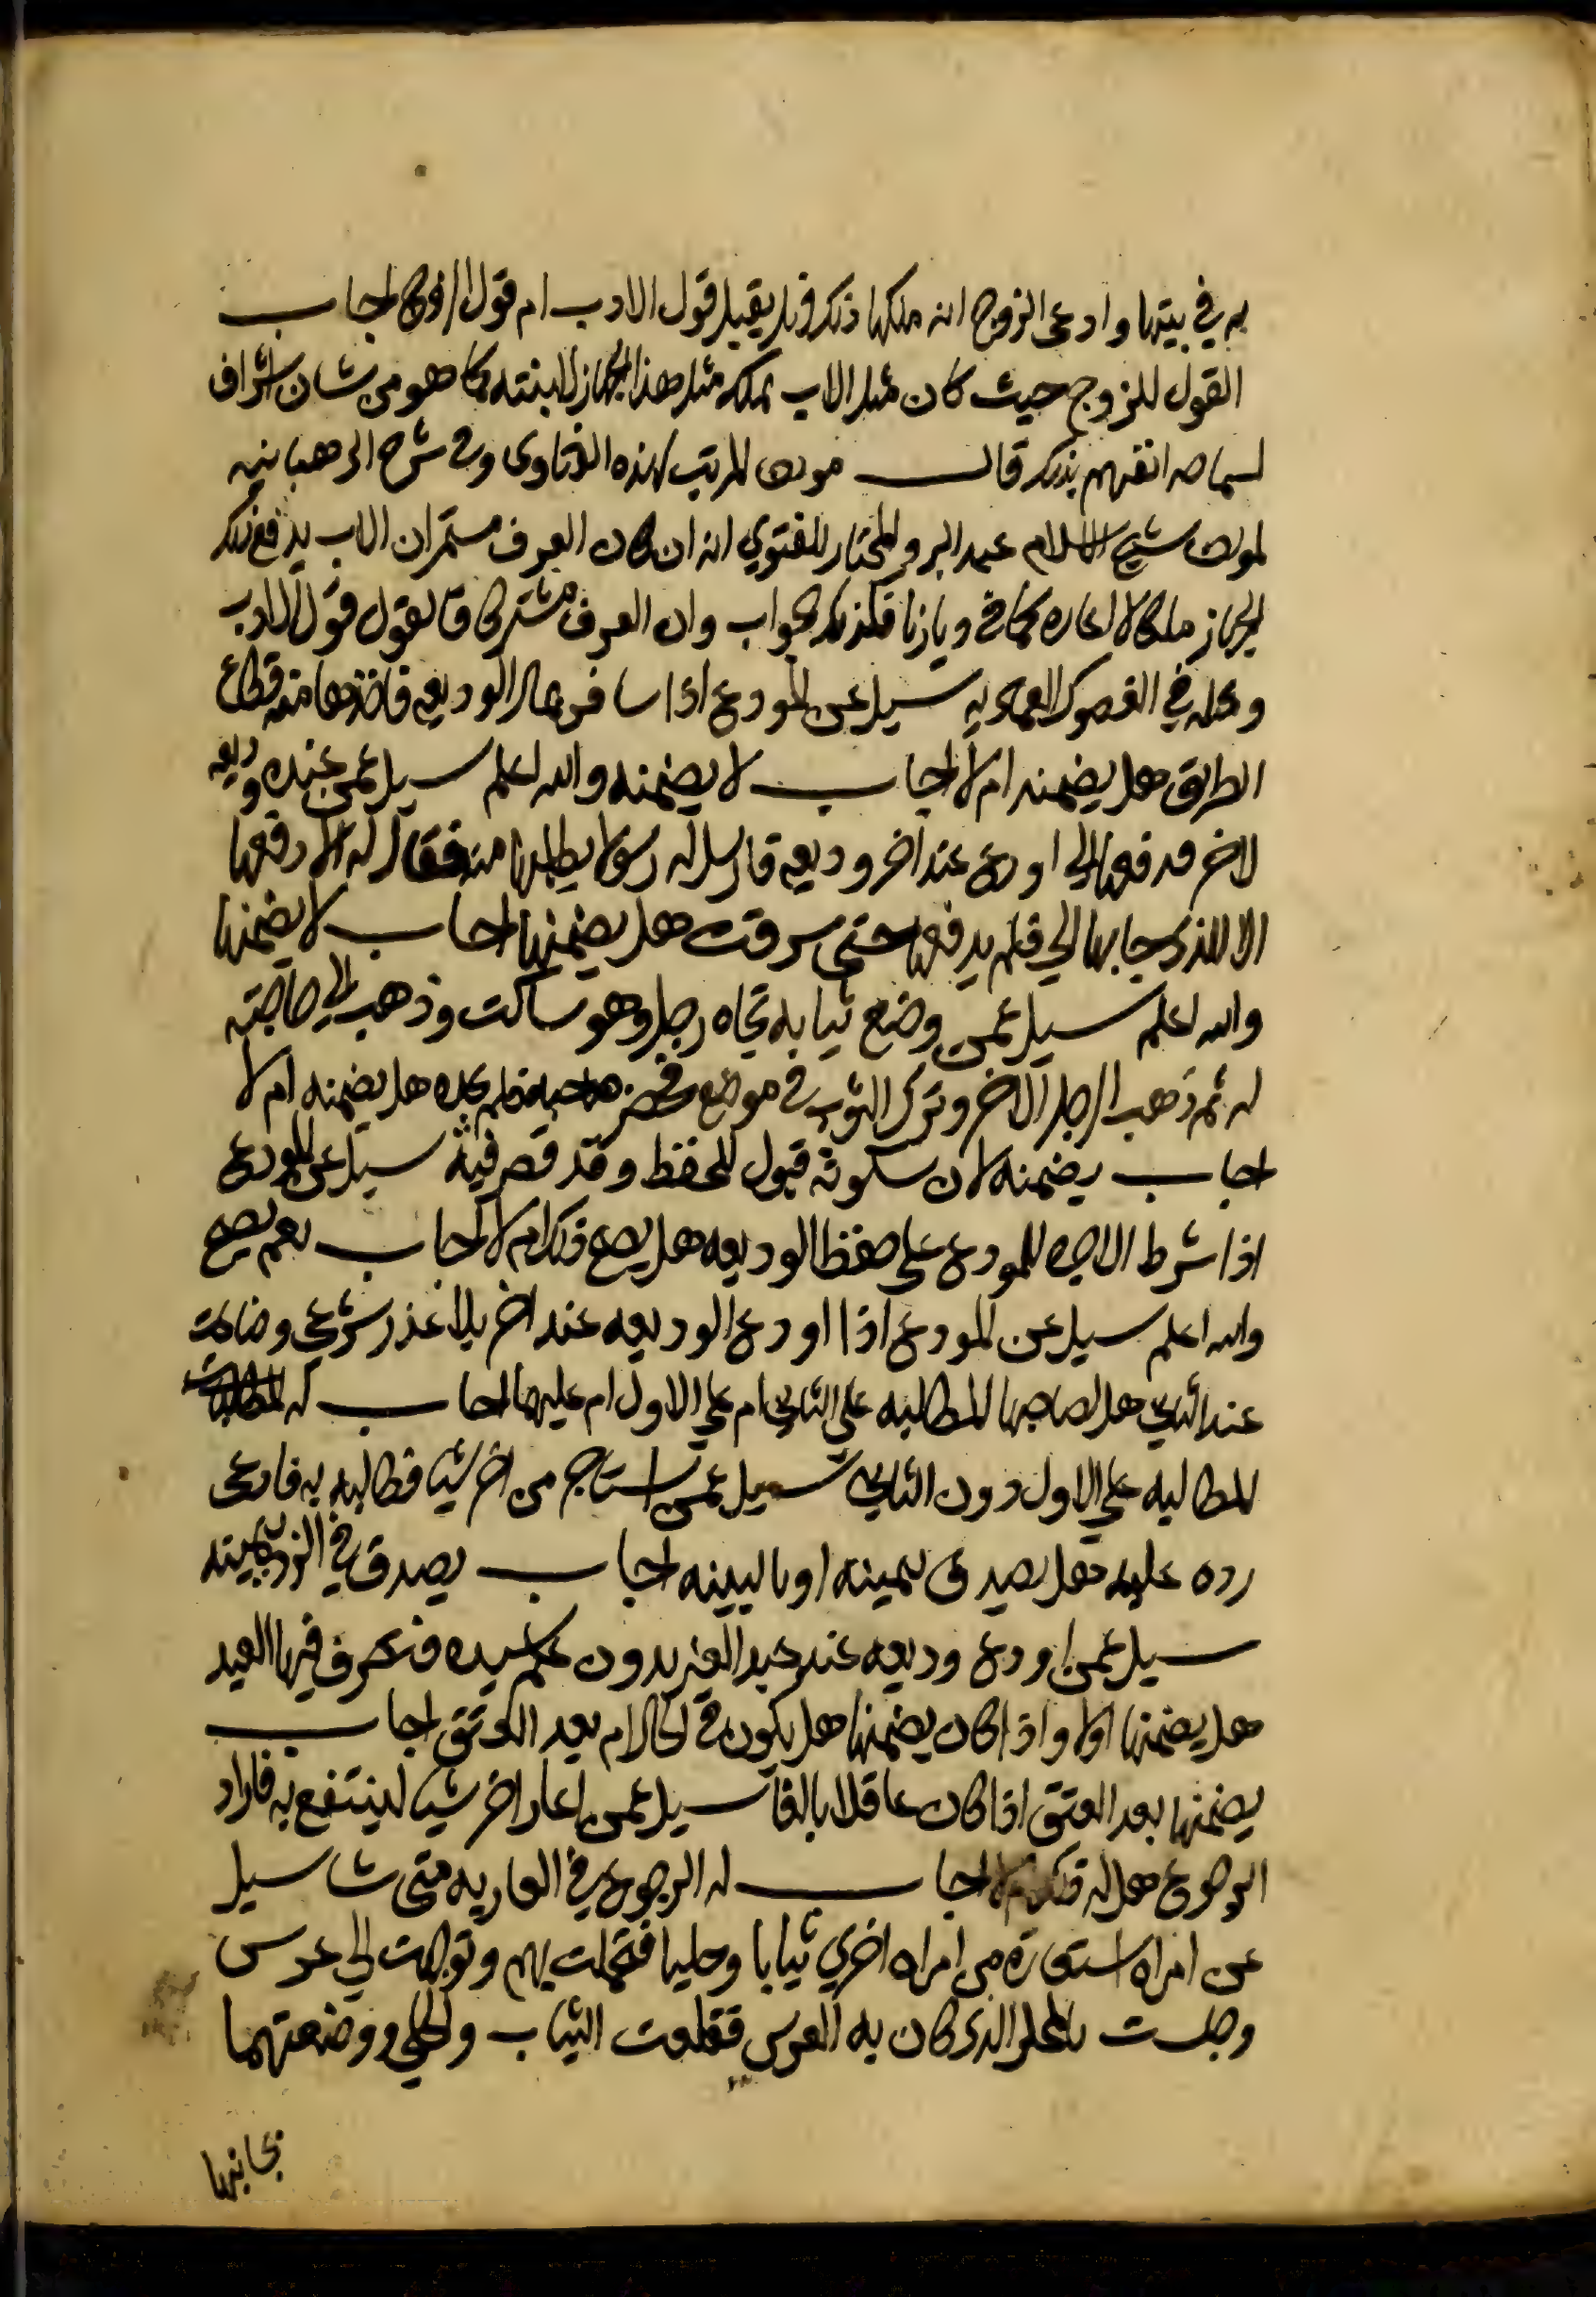 به في بيتها وادعى الزوج انه ملكها ذلك فهل يقبل قول الاب ام قول الزوج اجاب
القول للزوج حيث كان مثل الاب يملك مثل هذا الجهاز لابنته كما هو من شان اشراف
قال المرتب لهذه الفتاوى وفي شرح الوهبانيه
شيخ الاسلام عبد البر والمختار للفتوي انه ان كان العرف مستمر ان الاب يدفع ذلك
الجهاز ملكا لا اعاره كما في ديارنا فكذلك الجواب وان العرف مشتركا فالقول قول الاب
في الفصول العماديه سيل عن المودع اذا سافر بمال الوديعه فاخذها منه قطاع
الطريق هل يضمنه ام لا اجاب لا يضمنه والله اعلم سيل عمن عنده وديعه
لاخر فدفعها الي اودع عند اخر وديعه فارسل له رسولا يطلبها منه فقال له لا ادفعها
الا للذي جابها الي فلم يدفعها حتى سرقت هل يضمنها اجاب لا يضمنها
والله اعلم سيل عمن وضع ثيابه تجاه رجل وهو ساكت وذهب الي حاجته
له ثم ذهب الرجل الاخر وترك الثوب في موضع فحضر صاحبه فلم يجده هل يضمنه ام لا
اجاب يضمنه لان سكوته قبول للحفظ وقد قصر فيه سيل عن المودع
اذا شرط الاجره للمودع على حفظ الوديعه هل يصح ذلك ام لا اجاب نعم يصح
والله اعلم سيل عن المودع اذا اودع الوديعه عند اخر بلا عذر شرعي وضاعت
عند الثاني هل لصاحبها المطالبه على الثاني ام علي الاول ام عليهما اجاب له
المطالبه علي الاول دون الثاني سيل عمن استاجر من اخر شيا فطالبه به فادعى
رده عليه فهل يصدق بيمينه او بالبينه اجاب يصدق في الرد بيمينه
سيل عمن اودع وديعه عند عبد الغير بدون علم سيده فتصرف فيها العبد
هل يضمنها اولا واذا كان يضمنها هل يكون في الحال ام بعد العتق اجاب
يضمنها بعد العتق اذا كان عاقلا بالغا سيل عمن اعار اخر شيا لينتفع به فاراد
الرجوع هل له ذلك ام لا اجاب له الرجوع في العاريه متى شا سيل
عن امراه استعارة من امراه اخري ثيابا وحليا فتجملت بهم وتوجهت الي عرس
وجلست بالمحل الذي كان به العرس فقلعت الثياب والحلي ووضعتهما
بجانبها